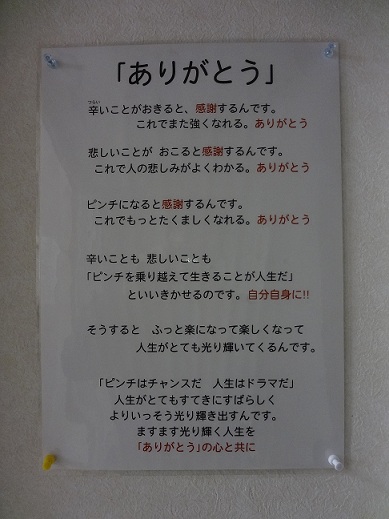 「ありがとう」
つらい
辛いことがおきると、感謝するんです。
これでまた強くなれる。ありがとう
悲しいことが おこると感謝するんです。
これで人の悲しみがよくわかる。ありがとう
ピンチになると感謝するんです。
これでもっとたくましくなれる。ありがとう
辛いことも 悲しいことも
「ピンチを乗り越えて生きることが人生だ」
といいきかせるのです。自分自身に!!
そうすると ふっと楽になって楽しくなって
人生がとても光り輝いてくるんです。
「ピンチはチャンスだ 人生はドラマだ」
人生がとてもすてきにすばらしく
よりいっそう光り輝き出すんです。
ますます光り輝く人生を
「ありがとう」の心と共に